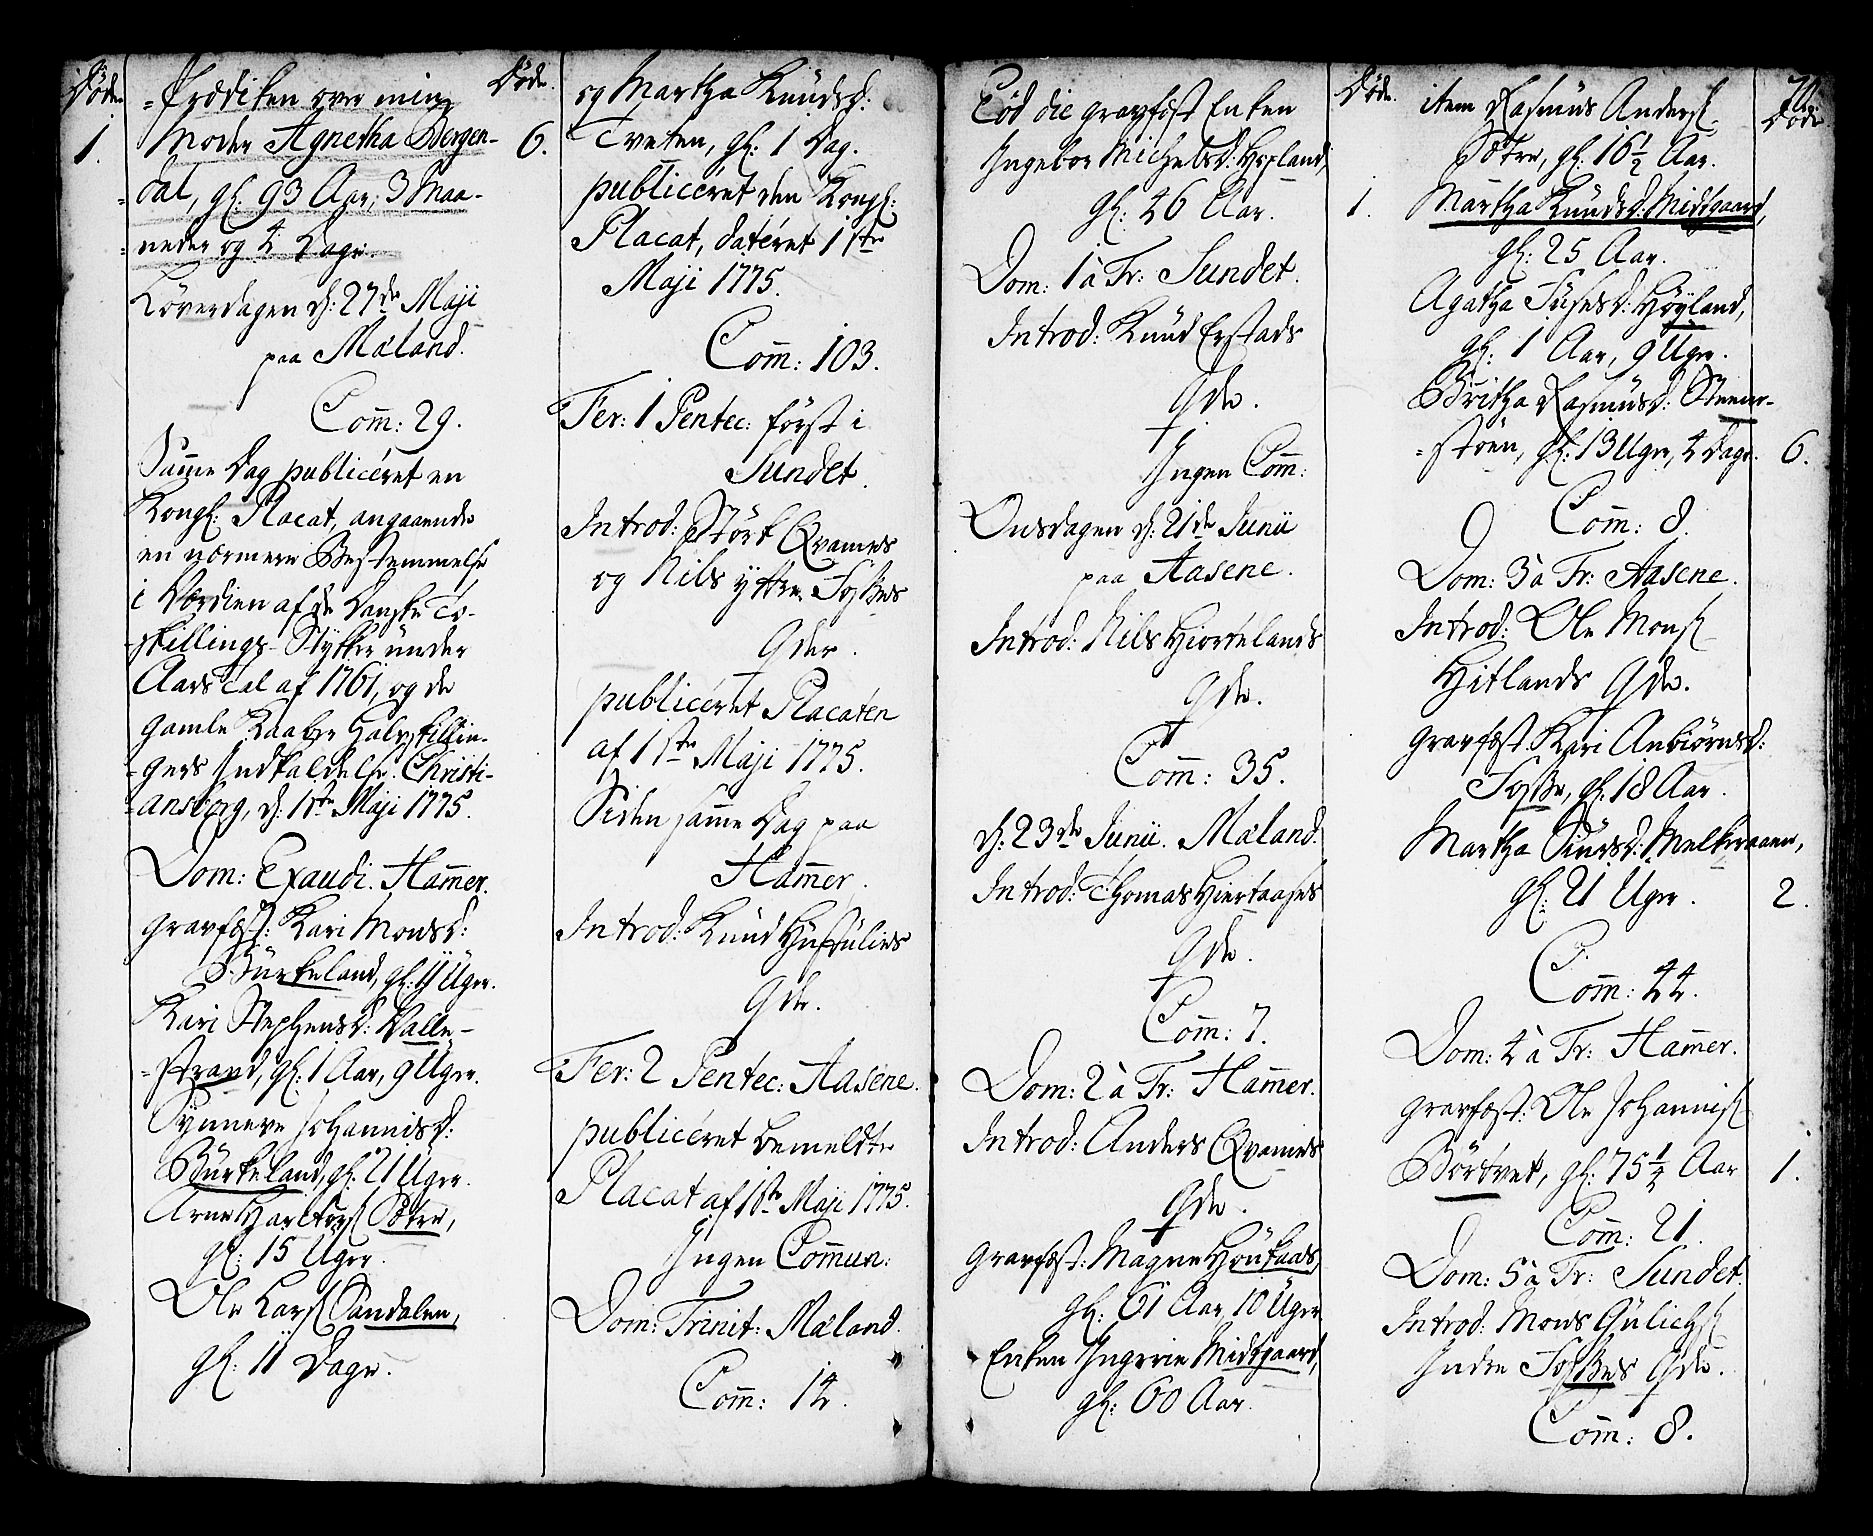 Døde.
1.
-Prædiken over min
Moder Agnetha Bergen-
-dal, gl: 93 Aar, 3 Maa-
-neder og 4 Dage.
Løverdagen d: 27de Maji
paa Mæland.
Com̄: 29.
Sam̄e Dag publiceret en
Kongl: Placat, angaaende
en nærmere Bestemmelse
i Værdien af de Danske To-
-skillings-Stykker under
Aars Tal af 1761, og de
gamle Kaaber Halvskillin-
-gers Indkaldelse. Christi-
-ansborg, d: 1ste Maji 1775.
Dom: Exaudi. Ham̄er.
Gravfæst: Kari Monsd:
Bürkeland, gl: 11 Uger.
Kari Stephensd: Valle-
-strand, gl: 1 Aar, 9 Uger.
Synneve Johannisd:
Bürkeland, gl: 21 Uger.
Arne Sætre,
gl: 15 Uger.
Ole Lars: Sandalen,
gl: 11 Dage.
Døde.
6.
og Martha Knüdsd:
Tveten, gl: 1 Dag.
publiceret den Kongl:
Placat, dateret 1ste
Maji 1775.
Com̄: 103.
Fer: 1 Pentec: først i
Sundet.
Introd: Størk Qvam̄es
og Nils yttre Fosses
Qder.
publiceret Placaten
af 1ste Maji 1775.
Siden sam̄e Dag paa
Ham̄er.
Introd: Knüd
Qde.
Fer: 2 Pentec: Aasene.
publiceret bemeldte
Placat af 1ste Maji 1775.
Ingen Com̄un:
Dom: Trinit: Mæland.
Com̄: 14.
Eod die gravfæst Enken
Ingebor Michelsd: Hopland,
gl: 46 Aar.
Dom: 1 à Tr: Sundet.
Introd: Knüd Erstads
Qde.
Ingen Com̄:
Onsdagen d: 21de Junii
paa Aasene.
Introd: Nils Hiortelands
Qde.
Com̄: 35.
d: 23de Junii. Mæland.
Introd: Thomas Hiertaases
Qde.
Com̄: 7.
Dom: 2 à Tr: Ham̄er.
Introd: Anders Qvam̄es
Qde.
Gravfæst: Magne Høükaas,
gl: 61 Aar 10 Uger
Enken Ingerie Midtgaard,
gl: 60 Aar.
Døde.
1.
item Rasmus Anders:
Sætre, gl: 16½ Aar.
Martha Knüdsd: Midtgaard,
gl: 25 Aar.
Agatha Høyland,
gl: 1 Aar, 9 Uger.
Britha Rasmüsd: Steener-
-støen, gl: 13 Uger, 4 Dage.
Com̄: 8.
Dom: 3 à Tr: Aasene.
Introd: Ole Mons:
Hitlands Qde.
Gravfæst: Kari Anbiørnsd:
Fosse, gl: 18 Aar.
Martha Siürsd: Melkeraaen,
gl: 21 Uger.
Com̄: 44.
Dom: 4 à Tr: Ham̄er.
Gravfæst: Ole Johannis:
Børtvet, gl: 75¼ Aar
Com̄: 21.
Dom: 5 à Tr: Sundet.
Introd: Mons Gülichs:
Indre Fosses Qde.
Com̄: 8.
Døde
6.
2.
1.